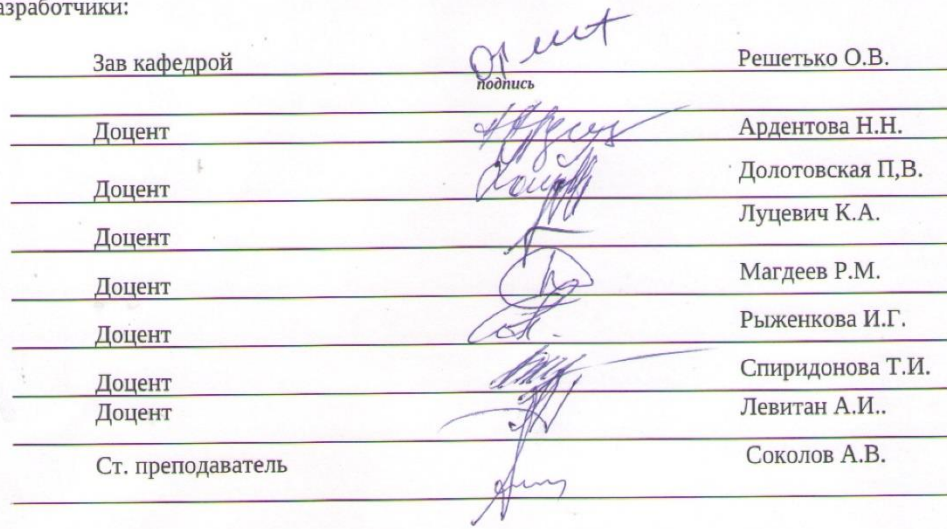 азработчики:
Зав кафедрой Решетько О.В.
подпись
Доцент Ардентова Н.Н.
Доцент Долотовская П,В.
Доцент Луцевич К.А.
Доцент Магдеев Р.М.
Доцент Рыженкова И.Г.
Доцент Спиридонова Т.И.
Доцент Левитан А.И..
Ст. преподаватель Соколов А.В.